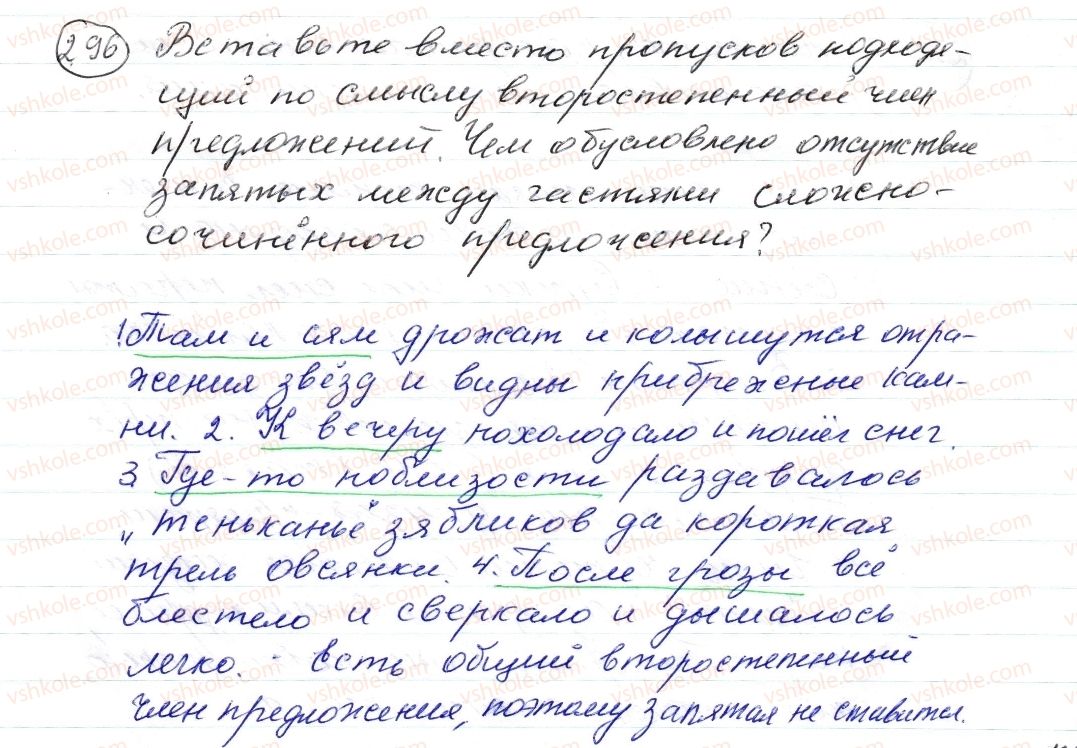 296 Вставьте вместо пропусков подходя-
щий по смыслу второстепенный член
предложений. Чем обусловлено отсутствие
запятых между частями сложно-
сочинённого предложения?
1. Там и сям дрожат и колышутся отра-
жения звёзд и видны прибрежные кам-
ни. 2. К вечеру похолодало и пошёл снег.
3. Где-то поблизости раздавалось
„теньканье" зябликов да короткая
трель овсянки. 4. После грозы всё
блестело и сверкало и дышалось
легко. - Есть общий второстепенный
член предложения, поэтому запятая не ставится.